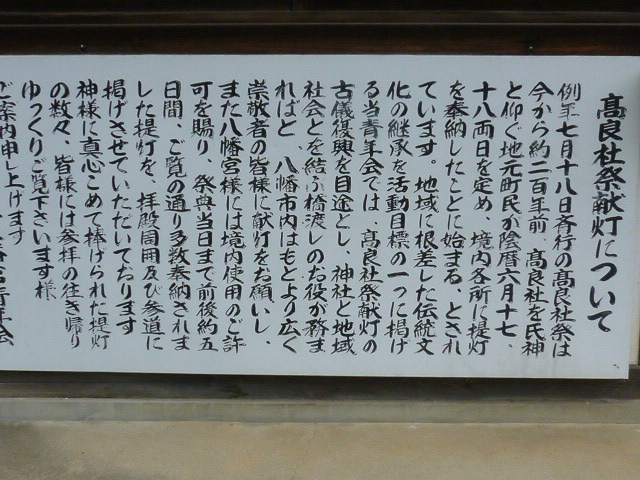 高良社祭献灯について
例年七月十八日斉行の高良社祭は
今から約二百年前、高良社を氏神
と仰ぐ地元町民が陰暦六月十七、
十八両日を定め、境内各所に提灯
を奉納したことに始まる、とされ
ています。地域に根差した伝統文
化の継承を活動目標の一つに掲げ
る当青年会では、高良社祭献灯の
古儀復興を目途とし、神社と地域
社会とを結ぶ橋渡しのお役が務ま
ればと、八幡市内はもとより広く
崇敬者の皆様に献灯をお願いし、
また八幡宮様には境内使用のご許
可を賜り、祭典当日まで前後約五
日間、ご覧の通り多数奉納されま
した提灯を、拝殿周囲及び参道に
掲げさせていただいております
神様に真心こめて捧げられた提灯
の数々、皆様には参拝の往き帰り
ゆっくりご覧下さいます様
ご案内申し上げます
青年会